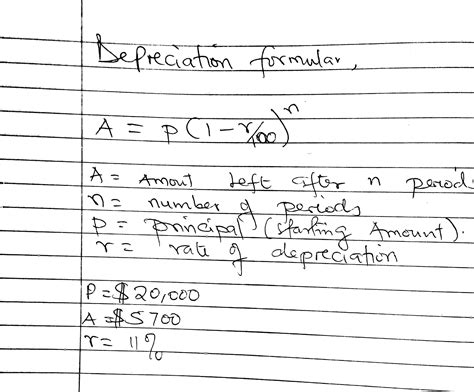 Depreciation formular,
A = P(1 - r/100)^n
A = Amout left after n period
n = number of periods
P = principal (starting Amount).
r = rate of depreciation
P = $20,000
A = $5700
r = 11%